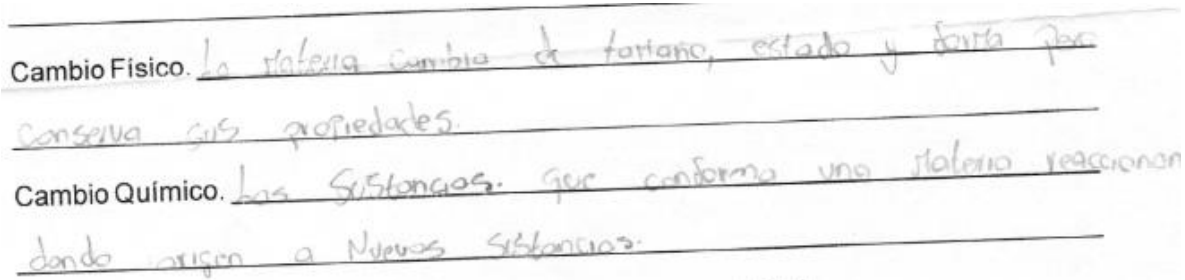 Cambio Físico. La Materia cambia de tamaño, estado y forma pero
conserva sus propiedades.
Cambio Químico. Las Sustancias. que conforma una Materia reaccionan
dando origen a Nuevas Sustancias.